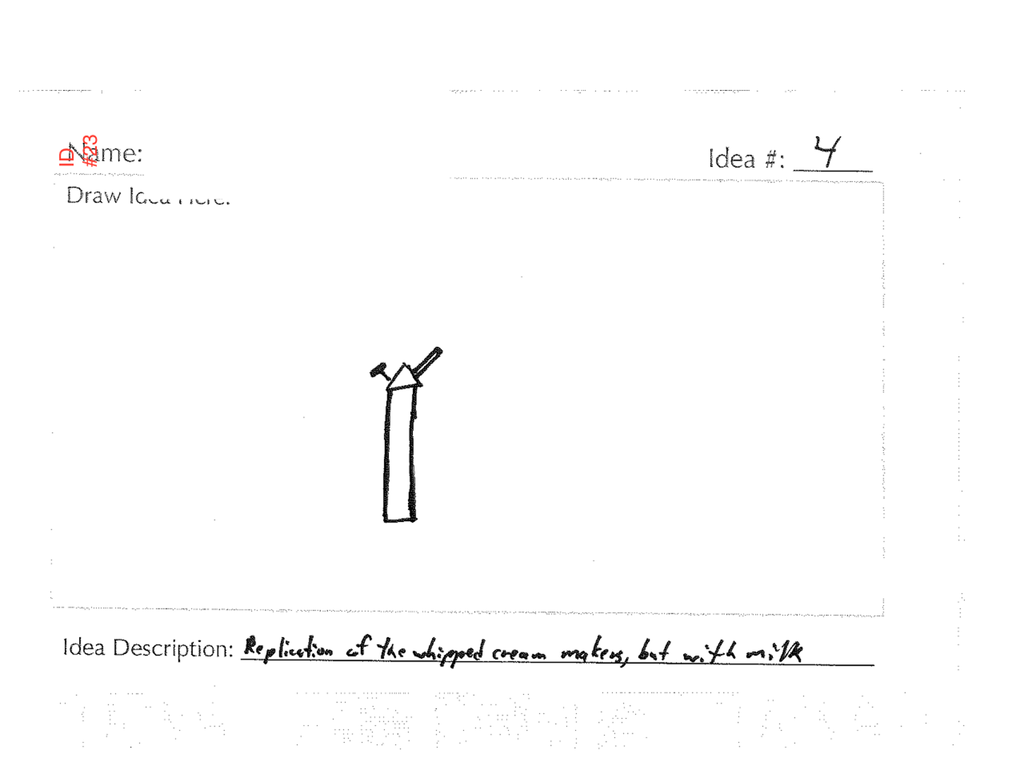 ID
#23
Name:
Idea #: 4
Draw Idea Here:
Idea Description: Replication of the whipped cream makers, but with milk